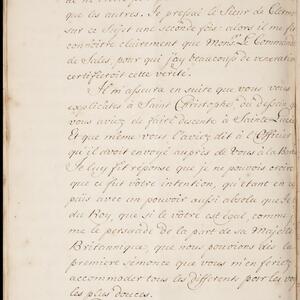 que les autres. Je pressai le Sieur de Clermo
sur ce Sujet une seconde fois: alors il me f
connoitre clairement que Mons. Le Command
de Sales, pour qui j'ay beaucoup de veneration
certifieroit cette verité.
Il m'asseura en suite que vous vous
expliquates à Saint Christophe, du dessein q
vous aviez de faire descente à Sainte Lucie
Et que même vous l'aviez dit à l'Officier
qu'il devoit envoyé auprès de vous à la Barba
Je luy fit réponse que je ne pouvois croire
que ce fut vôtre intention, qu'étant en ce
païs avec un pouvoir aussi absolu que Je
du Roy, que si le vôtre est égal, comme j
me le persuade de la part de sa Majesté
Britannique, que nous pouvions dès la
première sémonce que vous m'en feriez
accommoder tous les differents par les vo
les plus douces.